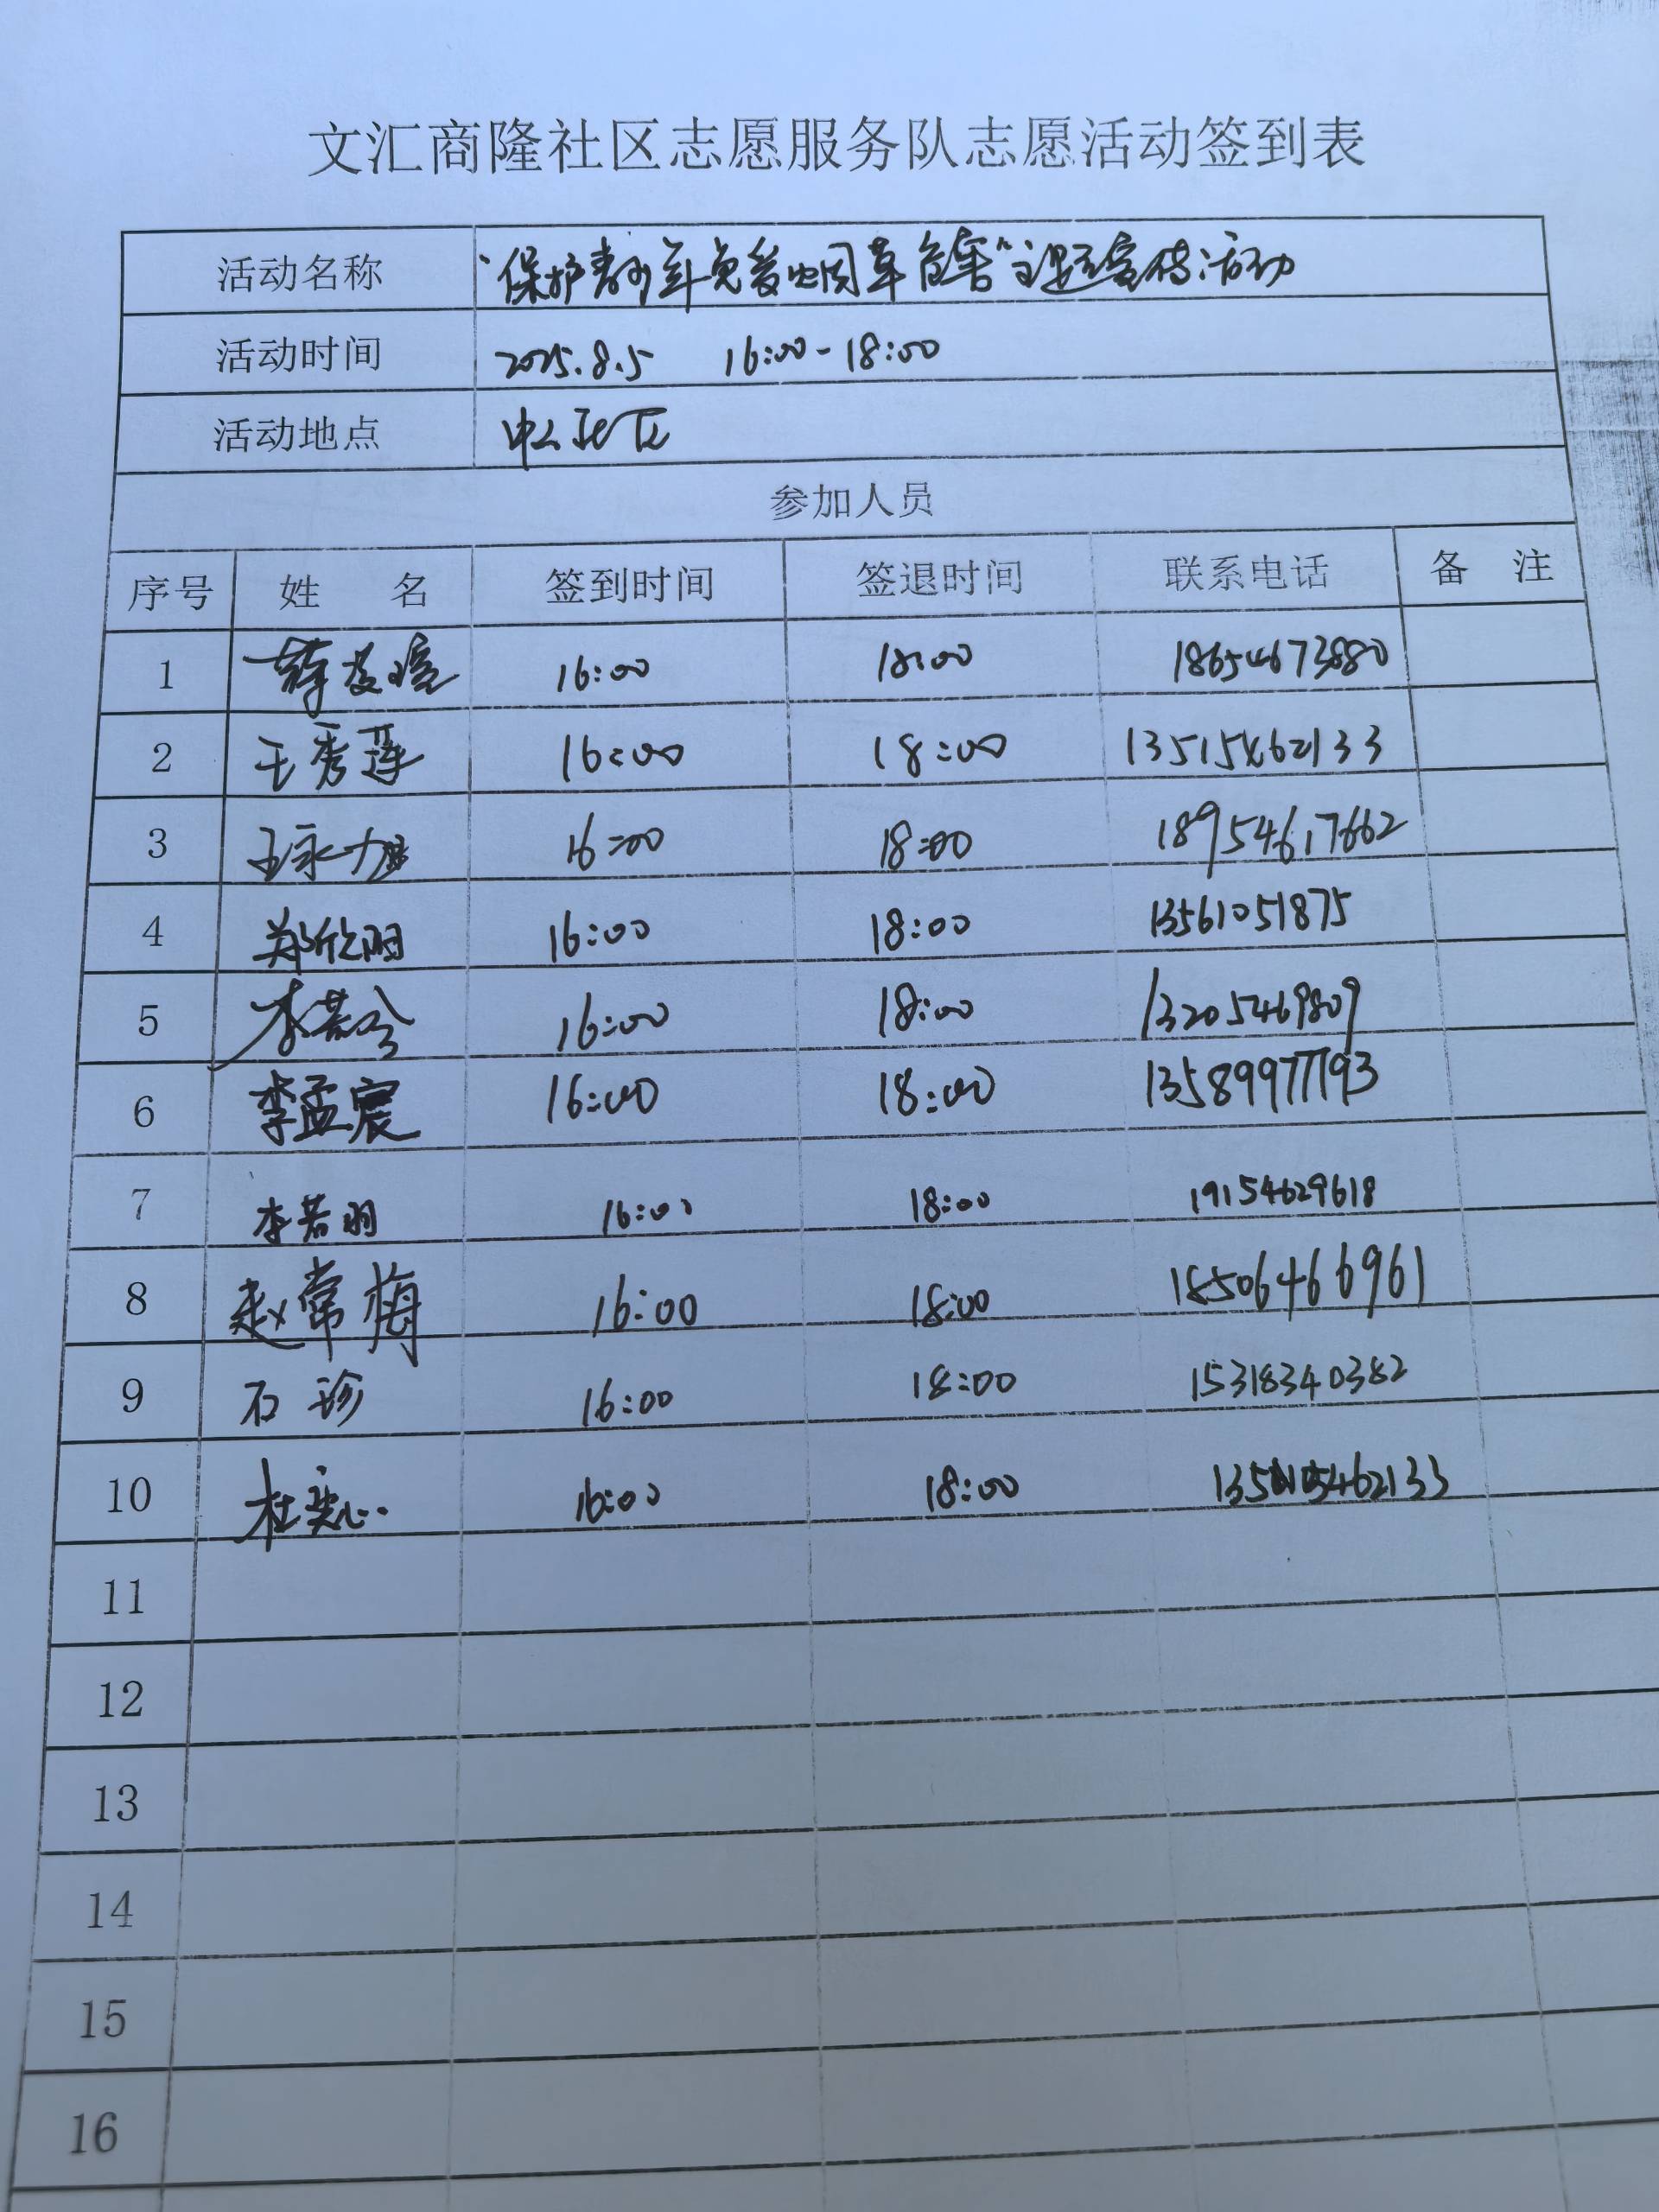 文汇商隆社区志愿服务队志愿活动签到表
活动名称 “保护青少年免受烟草危害”主题宣传活动
活动时间 2025.8.5 16:00-18:00
活动地点 社区
参加人员
序号 姓 名 签到时间 签退时间 联系电话 备 注
1 薛 16:00 18:00 18654673880
2 王秀莲 16:00 18:00 13515462133
3 王永 16:00 18:00 18954617662
4 郑欣明 16:00 18:00 13561051875
5 李若兮 16:00 18:00 13205469809
6 李孟宸 16:00 18:00 13589977193
7 李若羽 16:00 18:00 19154629618
8 赵常梅 16:00 18:00 18506466961
9 石珍 16:00 18:00 15318340382
10 杜奕心 16:00 18:00
11
12
13
14
15
16